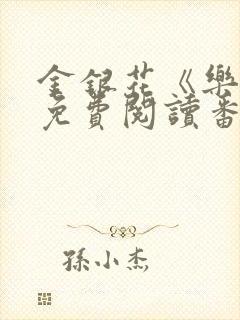 金銀花《樂
免費閱讀番
孫小杰